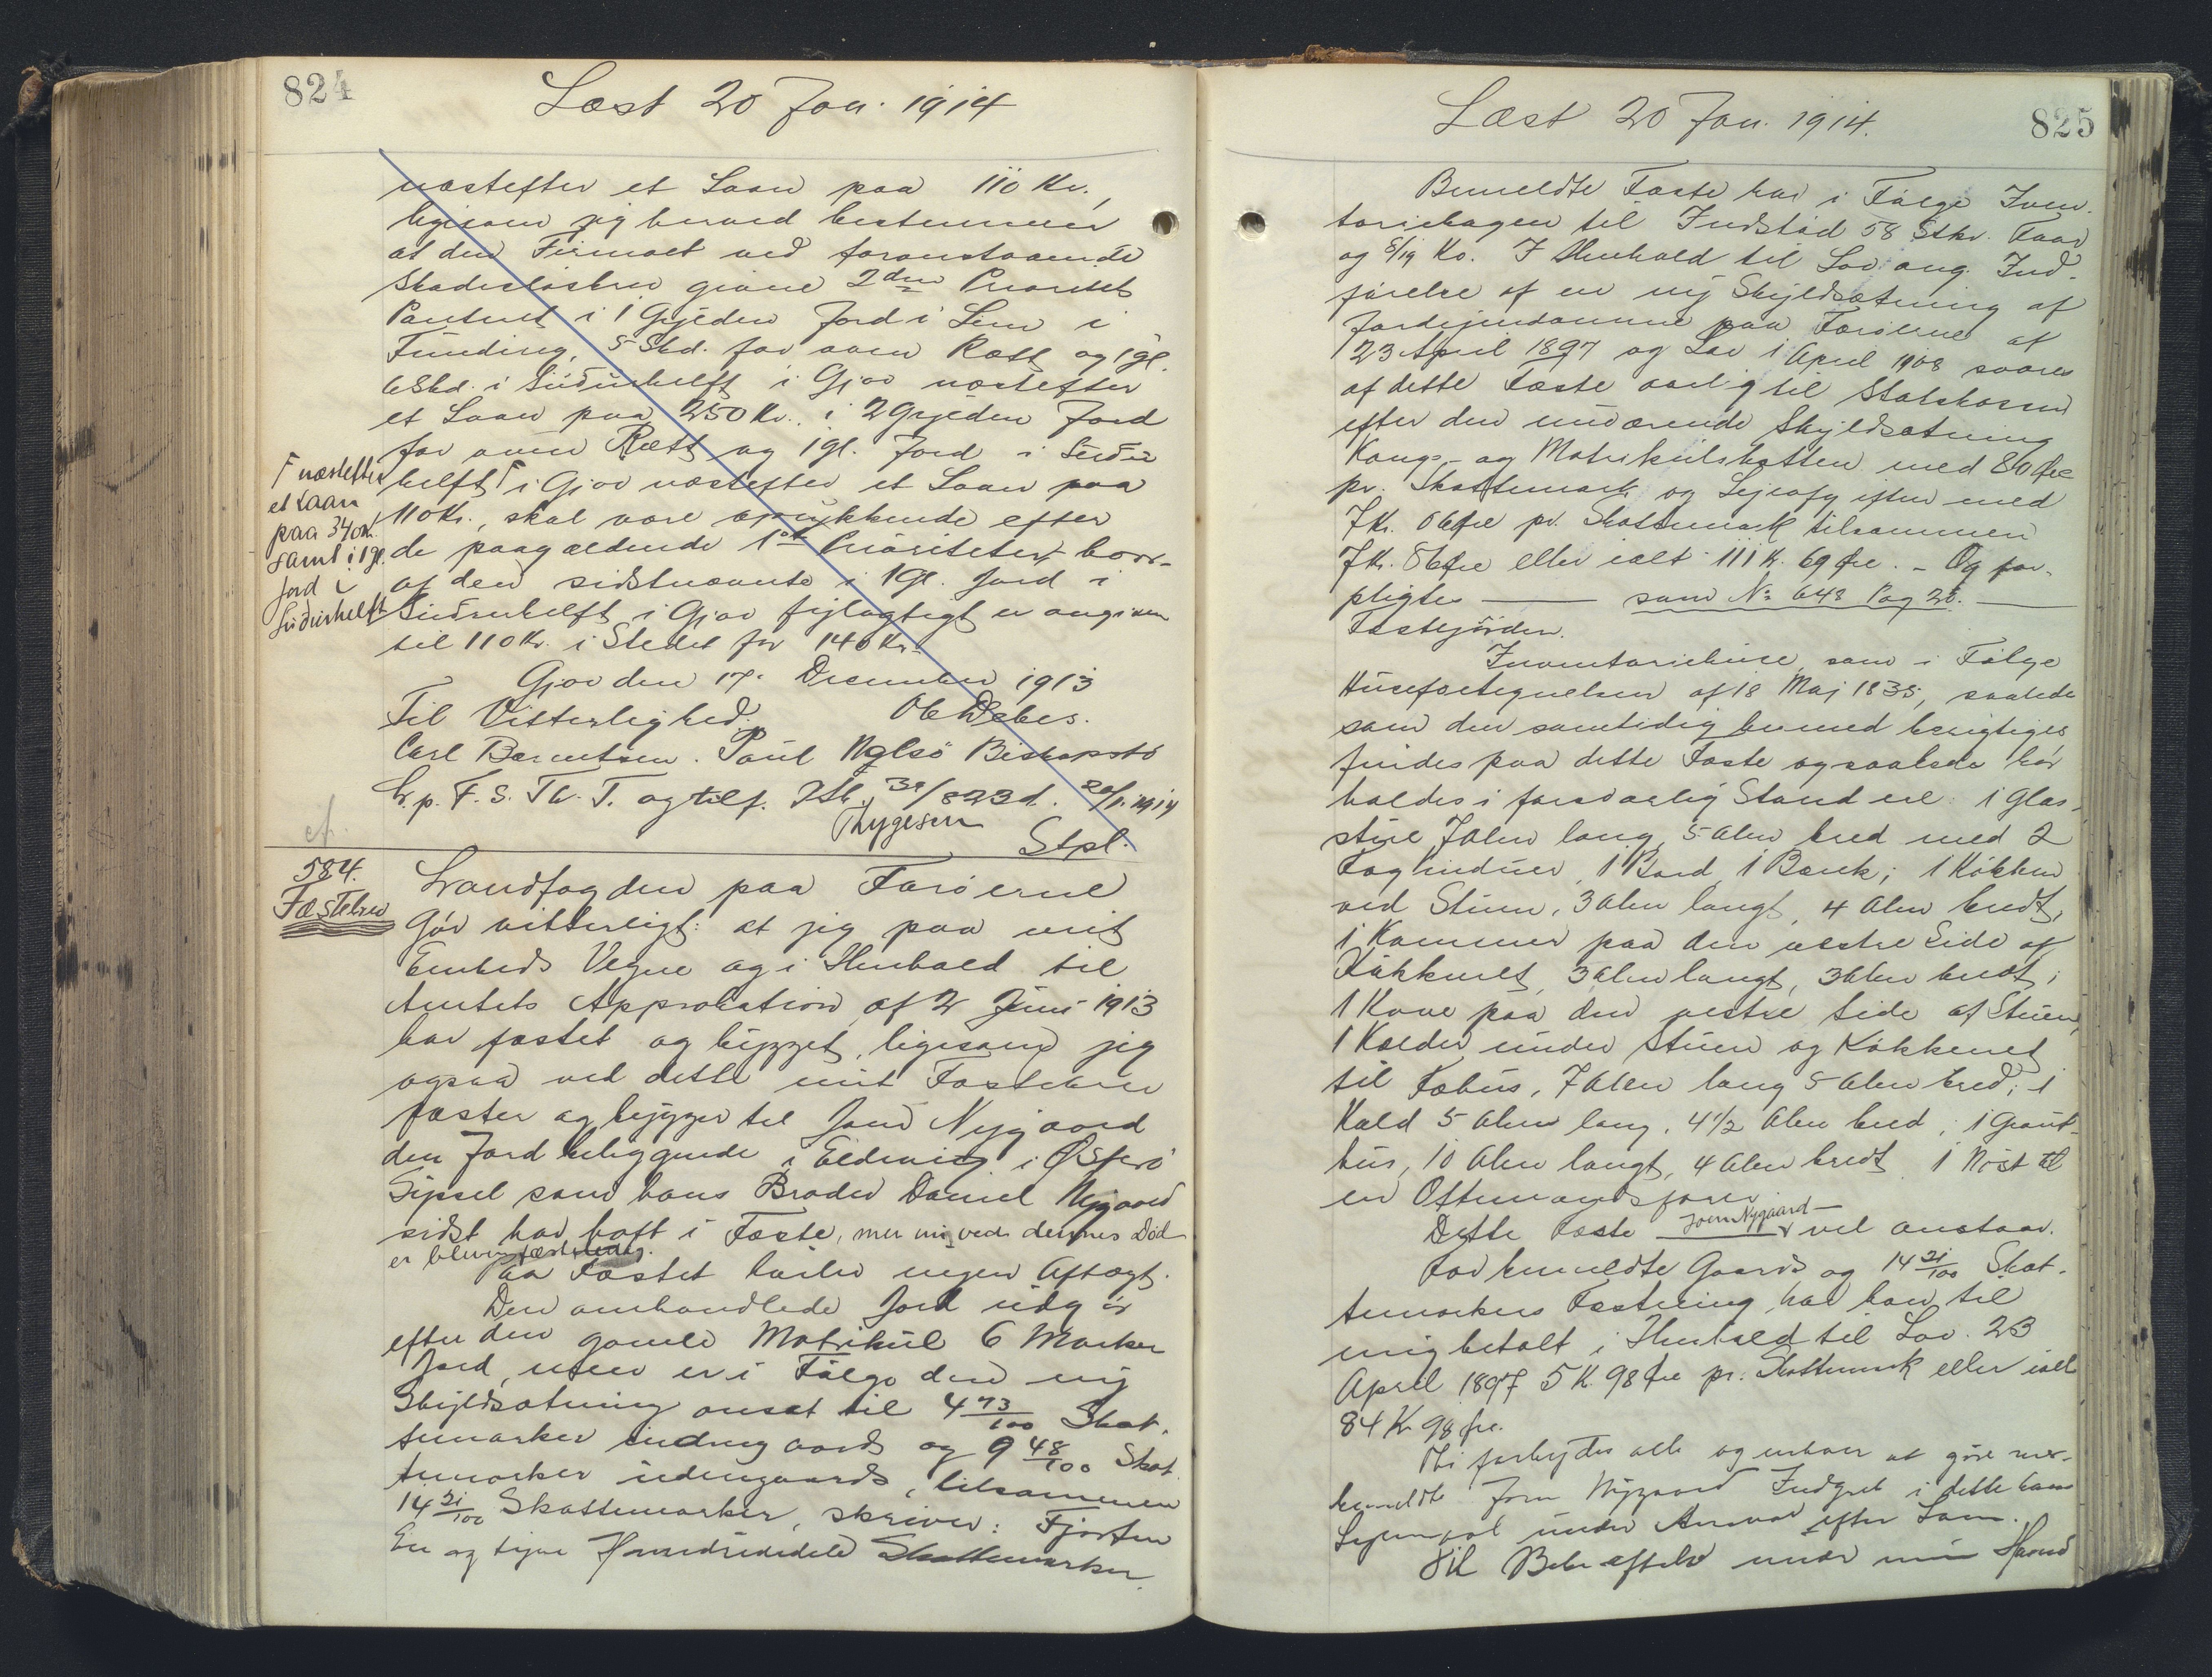 824
Læst 20 Jan. 1914
næstefter et Laan paa 110 Kr.,
ligesom jeg herved bestemmer
at den Firmaet ved foranstaaende
Skadesløsbrev givne 2den Prioritets
Panteret i 1 Gyjeden Jord i Lem i
Funding, 5 Skd. for oven Rætt og 1 gl.
6 Skd. i Sudurhelft i Gjov næstefter
et Laan paa 250 Kr., i 2 Gyjeden Jord
for oven Rætt og 1 gl. Jord i Sudur
helft Γ i Gjov næstefter et Laan paa
110 Kr., skal være oprykkende efter
de paagældende 1ste Prioriteter, hvor-
af den sidstnævnte i 1 Gl. Jord i
Sudurhelft i Gjov fejlagtigt er angiven
til 110 Kr. i Stedet for 140 Kr.
Γ næstefter
et Laan
paa 340 Kr.
samt i 1 gl.
Jord i
Sudurhelft
Gjov den 17. December 1913
Til Vitterlighed. Ole Debes.
Carl Berentsen. Poul Nolsö Biskopstö
Lr. p. F. S. Th. T. og tilf. Ztk. 39/823 d. 20/1. 1914
Thygesen
Stpl.
cf.
584.
Fæstebrev
Landfogden paa Færøerne
Gør vitterligt: at jeg paa mit
Embeds Vegne og i Henhold til
Amtets Approbation af 2 Juni 1913
har fæstet og bygget, ligesom jeg
ogsaa ved dette mit Fæstebrev
fæster og bygger til Joen Nygaard
den Jord beliggende i Eldevig i Østerø
Syssel som hans Broder Daniel Nygaard
sidst har haft i Fæste, men nu ved dennes Død
er bleven fæsteledig.
Paa Fæstet hviler ingen Aftægt.
Den omhandlede Jord udgør
efter den gamle Matrikul 6 Marker
Jord, men er i Følge den ny
Skyldsætning ansat til 4 73/100 Skat-
temarker indengaards og 9 48/100 Skat-
temarker udengaards, tilsammen
14 21/100 Skattemarker, skriver: Fjorten
En og tyve Hundrededele Skattemarker.
Læst 20 Jan. 1914.
825
Bemeldte Fæste har i Følge Inven-
tariebogen til Indstød 58 Stkr. Faar
og 5/19 Ko. I Henhold til Lov ang. Ind-
førelse af en ny Skyldsætning af
Jordejendomme paa Færøerne af
23 April 1897 og Lov 1 April 1908 svares
af dette Fæste aarlig til Statskassen
efter den nuværende Skyldsætning
Kongs- og Matrikulskatten med 80 Øre
pr. Skattemark og Lejeafgiften med
7 Kr. 06 Øre pr. Skattemark tilsammen
7 Kr. 86 Øre eller ialt 111 K. 69 Øre. – Og for-
pligtes — som No 648 Pag 26. —
Fæstejorden.
Inventariehuse, som i Følge
Husefortegnelsen af 18 Maj 1835, saaledes
som den samtidig hermed berigtiges
findes paa dette Fæste og saaledes bør
holdes i forsvarlig Stand ere: 1 Glas-
stue 7 Alen lang, 5 Alen bred med 2
Fag Vinduer, 1 Bord 1 Bænk; 1 Køkken
ved Stuen, 3 Alen langt, 4 Alen bredt,
1 Kammer paa den vestre Side af
Køkkenet, 3 Alen langt, 3 Alen bredt;
1 Kove paa den vestre Side af Stuen,
1 Kælder under Stuen og Køkkenet
til Fæhus, 7 Alen lang 5 Alen bred; 1
Hjald 5 Alen lang, 4 1/2 Alen bred, 1 Grut-
hus, 10 Alen langt, 4 Alen bredt 1 Nøst til
en Ottemandsfarer
Dette Fæste Joen Nygaard — vel anstaar.
For bemeldte Gaards og 14 21/100 Skat-
temarkers Fæstning har han til
mig betalt i Henhold til Lov 23
April 1897 5 K. 98 Øre pr. Skattemark eller ialt
84 Kr 98 Øre.
Thi forbydes alle og enhver at gøre mer-
bemeldte Joen Nygaard Indgreb i dette hans
Lejemaal under Ansvar efter Lov.
Til Bekræftelse under min Haand